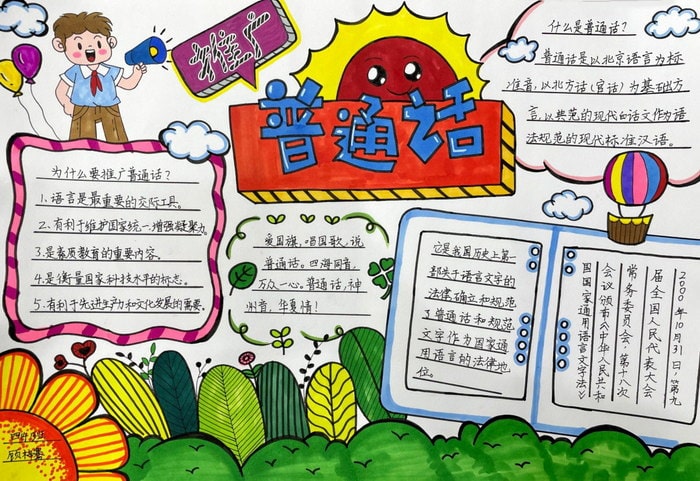 推广
普通话
什么是普通话？
普通话是以北京语言为标
准音，以北方话（官话）为基础方
言，以典范的现代白话文作为语
法规范的现代标准汉语。
为什么要推广普通话？
1.语言是最重要的交际工具。
2、有利于维护国家统一，增强凝聚力
3.是素质教育的重要内容。
4.是衡量国家科技水平的标志。
5.有利于先进生产力和文化发展的需要。
爱国旗，唱国歌，说
普通话。四海同音，
万众一心。普通话，神
州音，华夏情！
它是我国历史上第一
部关于语言文字的
法律确立和规范
了普通话和规范
文字作为国家通
用语言的法律地
位。
2000年10月31日，第九
届全国人民代表大会
常务委员会，第十八次
会议颁布《中华人民共和
国国家通用语言文字法》